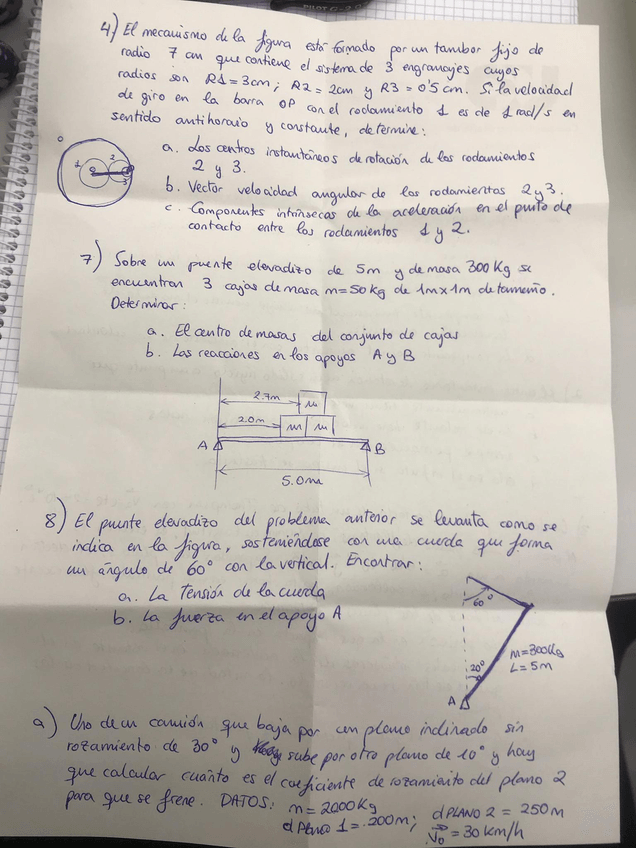 PILOT G-2 0
4) El mecanismo de la figura está formado por un tambor fijo de
radio 7 cm que contiene el sistema de 3 engranajes cuyos
radios son R1 = 3cm ; R2 = 2cm y R3 = 0'5 cm. Si la velocidad
de giro en la barra OP con el rodamiento 1 es de 1 rad/s en
sentido antihorario y constante, determine:
a. Los centros instantáneos de rotación de los rodamientos
2 y 3.
b. Vector velocidad angular de los rodamientos 2 y 3.
c. Componentes intrínsecas de la aceleración en el punto de
contacto entre los rodamientos 1 y 2.
0
1
2
3
7) Sobre un puente elevadizo de 5m y de masa 300 Kg se
encuentran 3 cajas de masa m = 50 kg de 1m x 1m de tamaño.
Determinar:
a. El centro de masas del conjunto de cajas
b. Las reacciones en los apoyos A y B
2.7m
m
2.0m
m m
A
B
5.0m
8) El puente elevadizo del problema anterior se levanta como se
indica en la figura, sosteniéndose con una cuerda que forma
un ángulo de 60° con la vertical. Encontrar:
a. La tensión de la cuerda
b. La fuerza en el apoyo A
60°
20°
m = 300Kg
L = 5m
A
a) Uno de un camión que baja por un plano inclinado sin
rozamiento de 30° y sube por otro plano de 10° y hay
que calcular cuánto es el coeficiente de rozamiento del plano 2
para que se frene. DATOS: m = 2000 Kg
d PLANO 1 = 200m; d PLANO 2 = 250 m
V₀ = 30 km/h